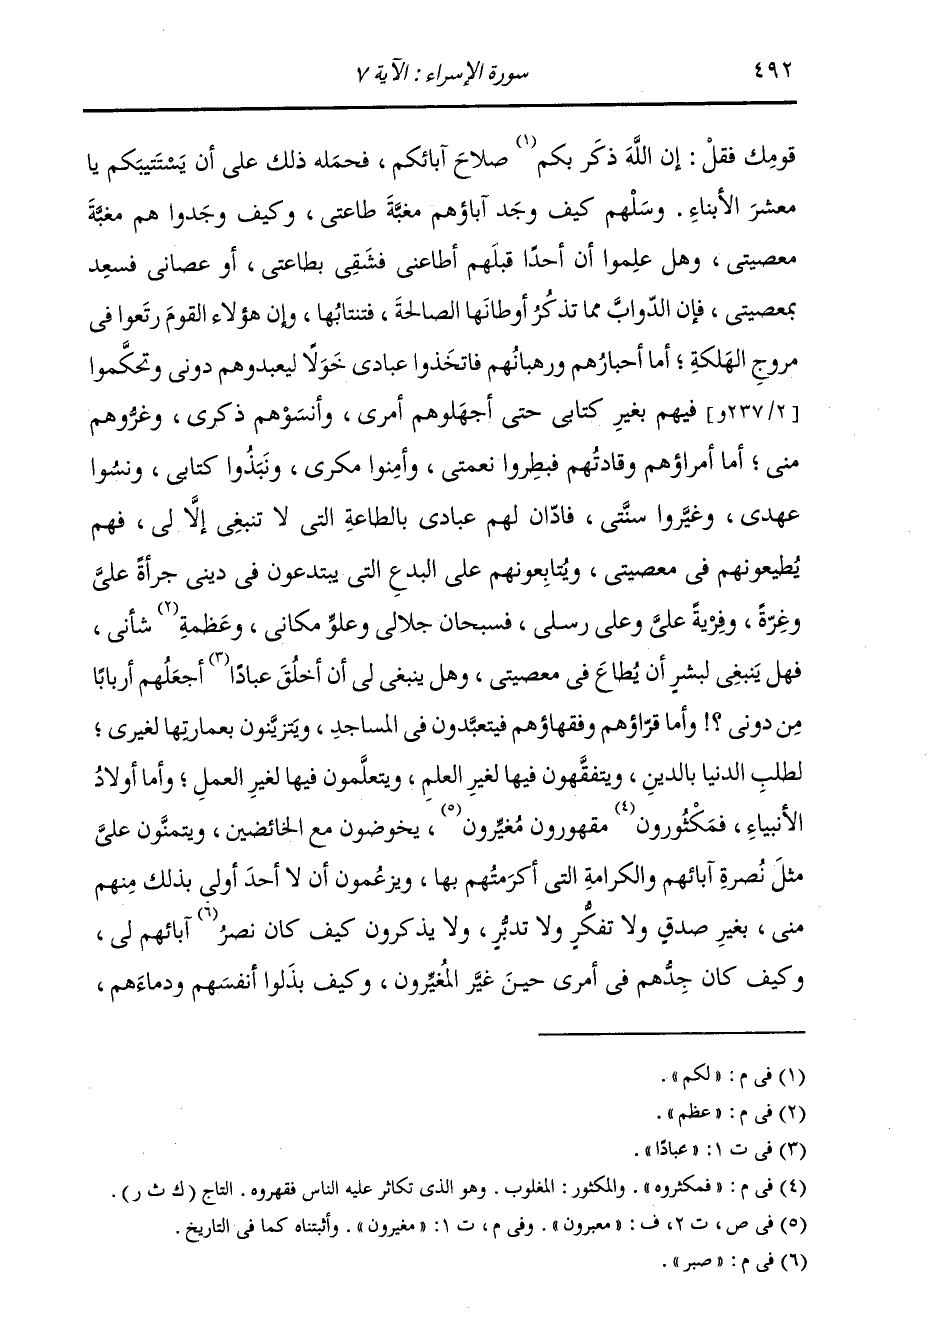 ٤٩٢ سورة الإسراء : الآية ٧
قومِك فقلْ : إن اللَّهَ ذكَر بكم(١) صلاحَ آبائكم ، فحمَله ذلك على أن يَسْتَتيبَكم يا
معشرَ الأبناءِ . وسَلْهم كيف وجَد آباؤهم مغبَّةَ طاعتى ، وكيف وجَدوا هم مغبَّةَ
معصيتى ، وهل علِموا أن أحدًا قبلَهم أطاعنى فشَقِى بطاعتى ، أو عصانى فسعِد
بمعصيتى ، فإن الدّوابَّ مما تذكُرُ أوطانَها الصالحةَ ، فتنتابُها ، وإن هؤلاء القومَ رتَعوا فى
مروجِ الهَلكةِ ؛ أما أحبارُهم ورهبانُهم فاتخَذوا عبادى خَوَلًا ليعبدوهم دونى وتحكَّموا
[٢٣٧/٢و] فيهم بغيرِ كتابى حتى أجهَلوهم أمرى ، وأنسَوْهم ذكرى ، وغرُّوهم
منى ؛ أما أمراؤهم وقادتُهم فبطِروا نعمتى ، وأمِنوا مكرى ، ونَبَذُوا كتابى ، ونسُوا
عهدى ، وغيَّروا سنَّتى ، فادّان لهم عبادى بالطاعةِ التى لا تنبغِى إلَّا لى ، فهم
يُطيعونهم فى معصيتى ، ويُتابِعونهم على البدعِ التى يبتدعون فى دينى جرأةً علىَّ
وغِرّةً ، وفِرْيةً علىَّ وعلى رسلى ، فسبحان جلالى وعلوِّ مكانى ، وعَظمةِ(٢) شأنى ،
فهل يَنبغِى لبشرٍ أن يُطاعَ فى معصيتى ، وهل ينبغى لى أن أخلُقَ عبادًا(٣) أجعَلُهم أربابًا
مِن دونى ؟! وأما قرّاؤهم وفقهاؤهم فيتعبَّدون فى المساجدِ ، ويَتزيَّنون بعمارتِها لغيرى ؛
لطلبِ الدنيا بالدينِ ، ويتفقَّهون فيها لغيرِ العلمِ ، ويتعلَّمون فيها لغيرِ العملِ ؛ وأما أولادُ
الأنبياءِ ، فمَكْثُورون(٤) مقهورون مُغيِّرون(٥) ، يخوضون مع الخائضين ، ويتمنَّون علىَّ
مثلَ نُصرةِ آبائهم والكرامةِ التى أكرَمتُهم بها ، ويزعُمون أن لا أحدَ أولى بذلك مِنهم
منى ، بغيرِ صدقٍ ولا تفكُّرٍ ولا تدبُّرٍ ، ولا يذكرون كيف كان نصرُ(٦) آبائهم لى ،
وكيف كان جِدُّهم فى أمرى حينَ غيَّر المُغيِّرون ، وكيف بذَلوا أنفسَهم ودماءَهم ،
(١) فى م : « لكم » .
(٢) فى م : « عظم » .
(٣) فى ت ١ : « عبادًا » .
(٤) فى م : « فمكثروه » . والمكثور : المغلوب . وهو الذى تكاثر عليه الناس فقهروه . التاج (ك ث ر) .
(٥) فى ص ، ت ٢، ف : « معبرون » . وفى م ، ت ١ : « مغيرون » . وأثبتناه كما فى التاريخ .
(٦) فى م : « صبر » .